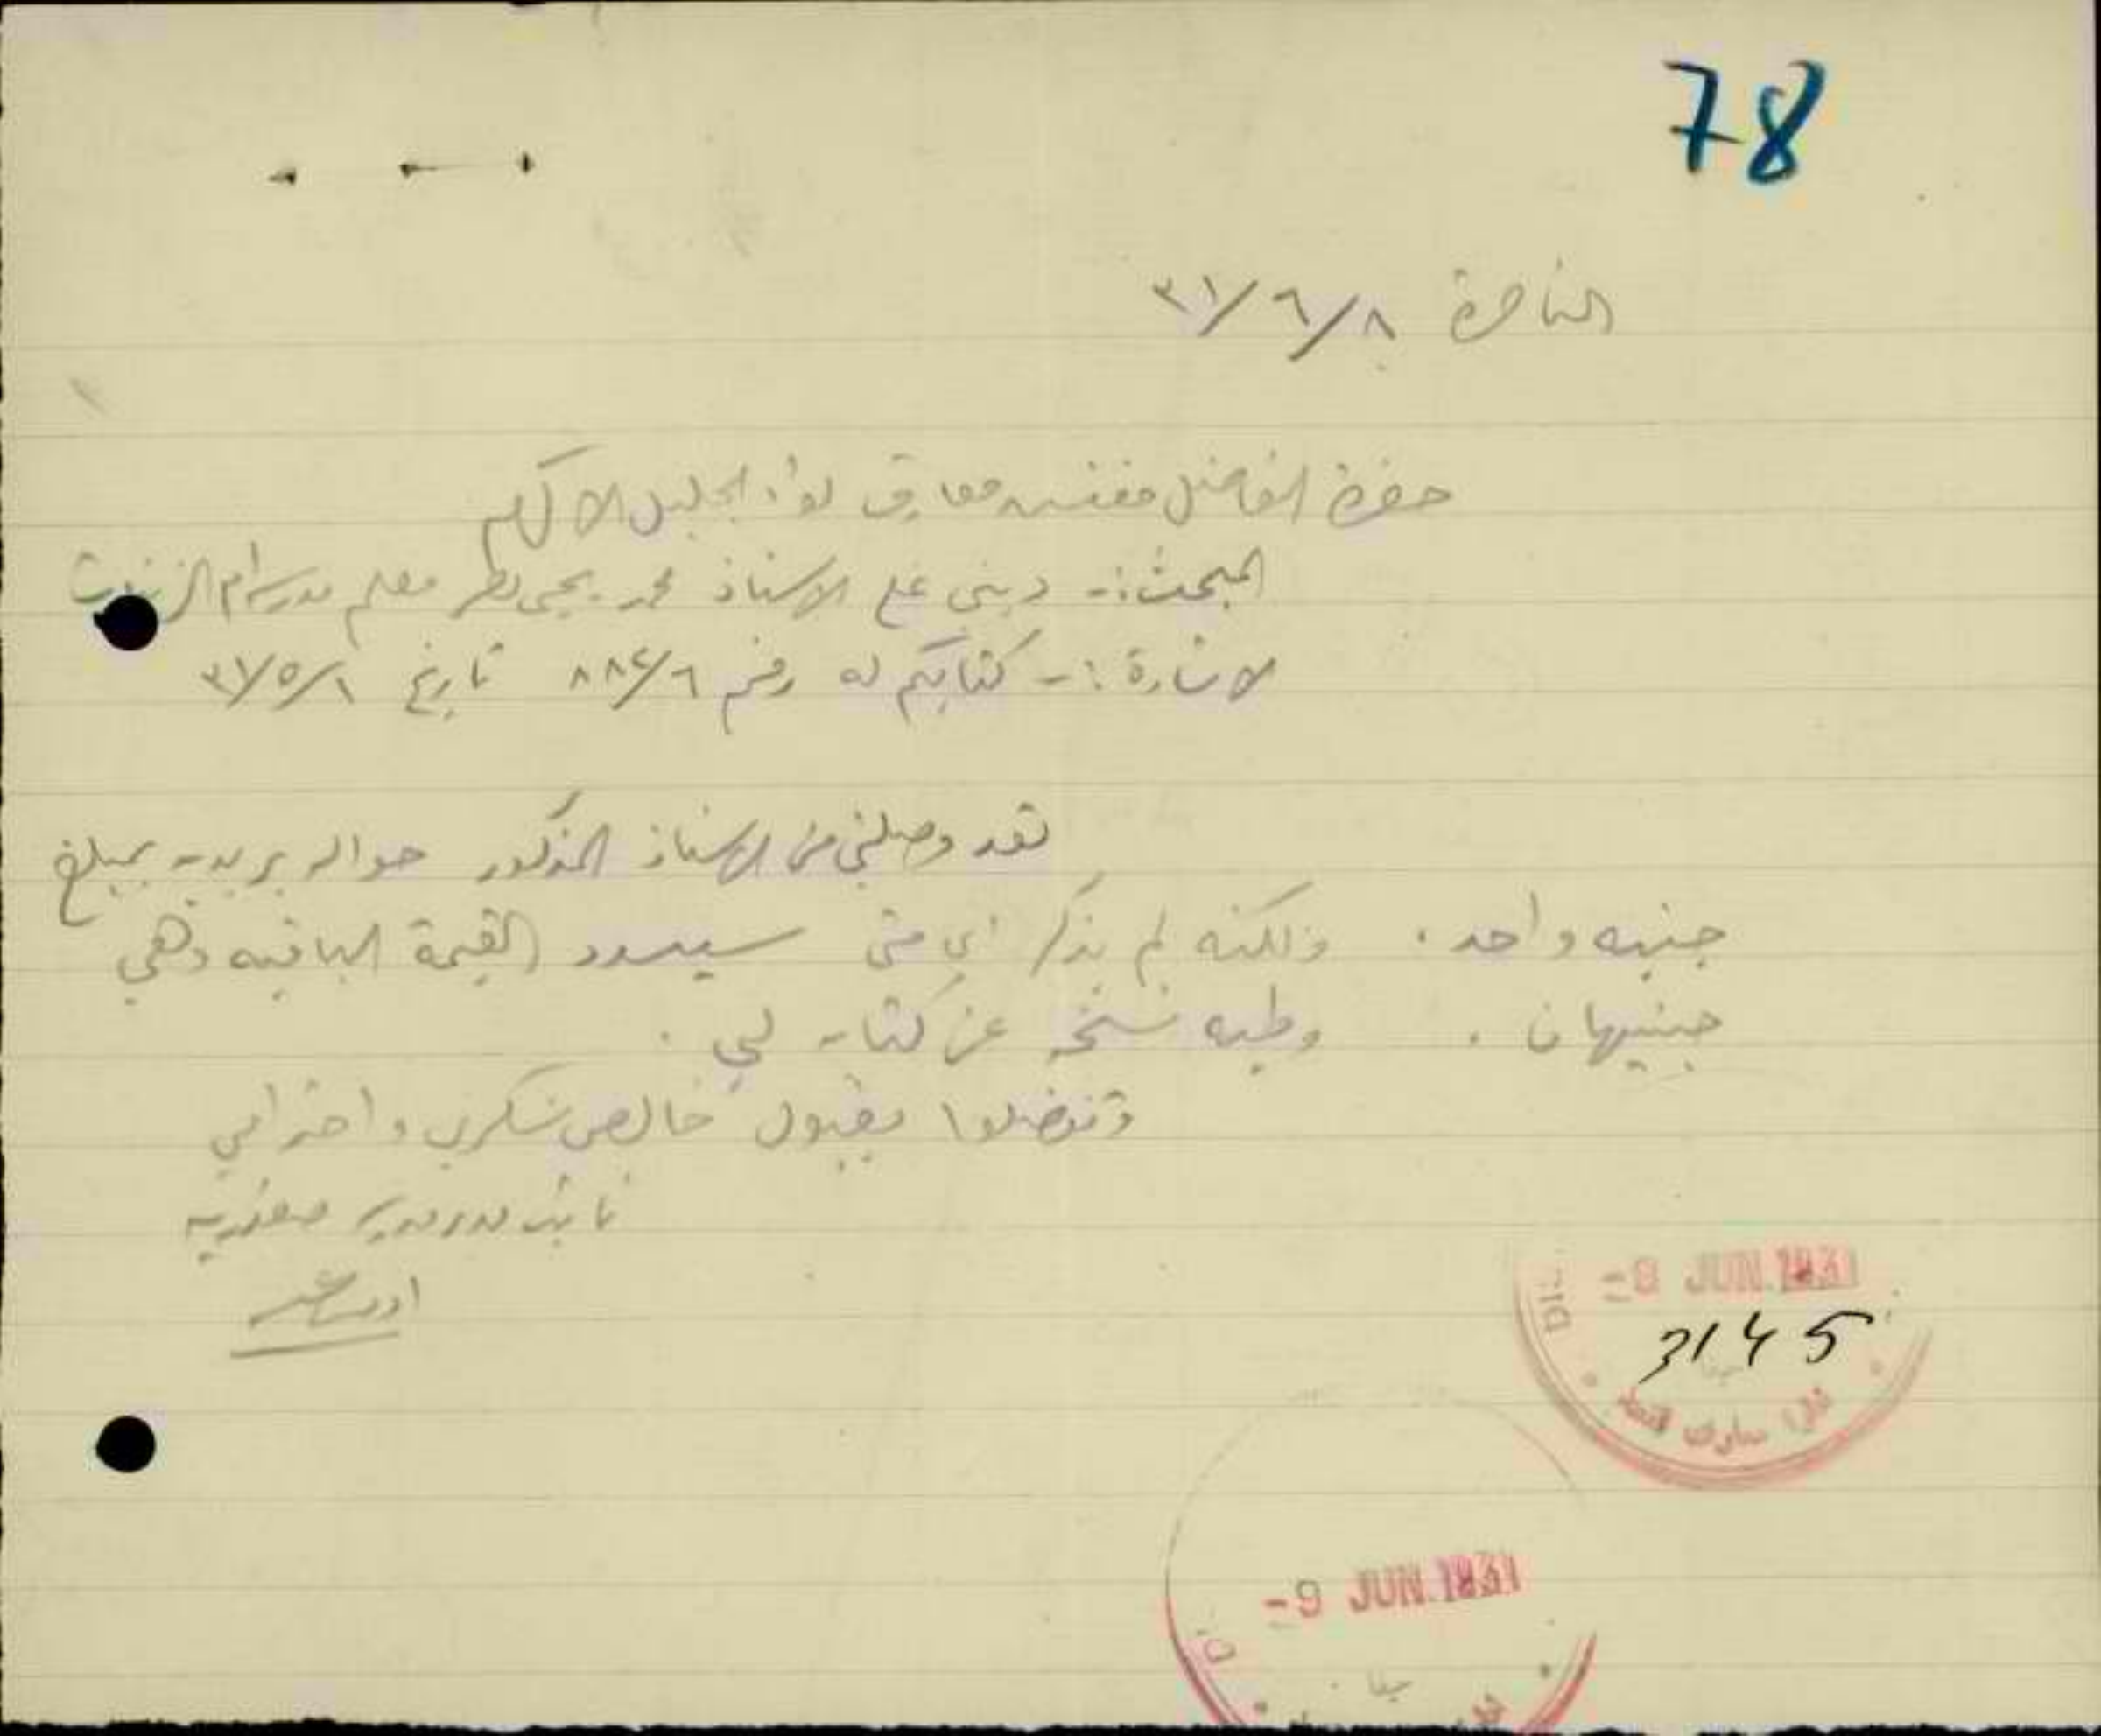 78
الناصرة ٣١/٦/٨
حضرة الفاضل مفتش معارف لواء الجليل الاكرم
المبحث :- ديني على الاستاذ محمد يحيى معلم مدرسة ام الزينات
الاشارة :- كتابكم له رقم ٨٨٤/٦ تاريخ ٣١/٥/١
لقد وصلني من الاستاذ المذكور حواله بريديه بمبلغ
جنيه واحد . ولكنه لم يذكر لي متى سيسدد القيمة الباقيه وهي
جنيهان . وطيه نسخه عن كتابه لي .
وتفضلوا بقبول خالص شكري واحترامي
نائب مدير مدرسة صفوريه
-8 JUN. 1931
3145
-9 JUN. 1931